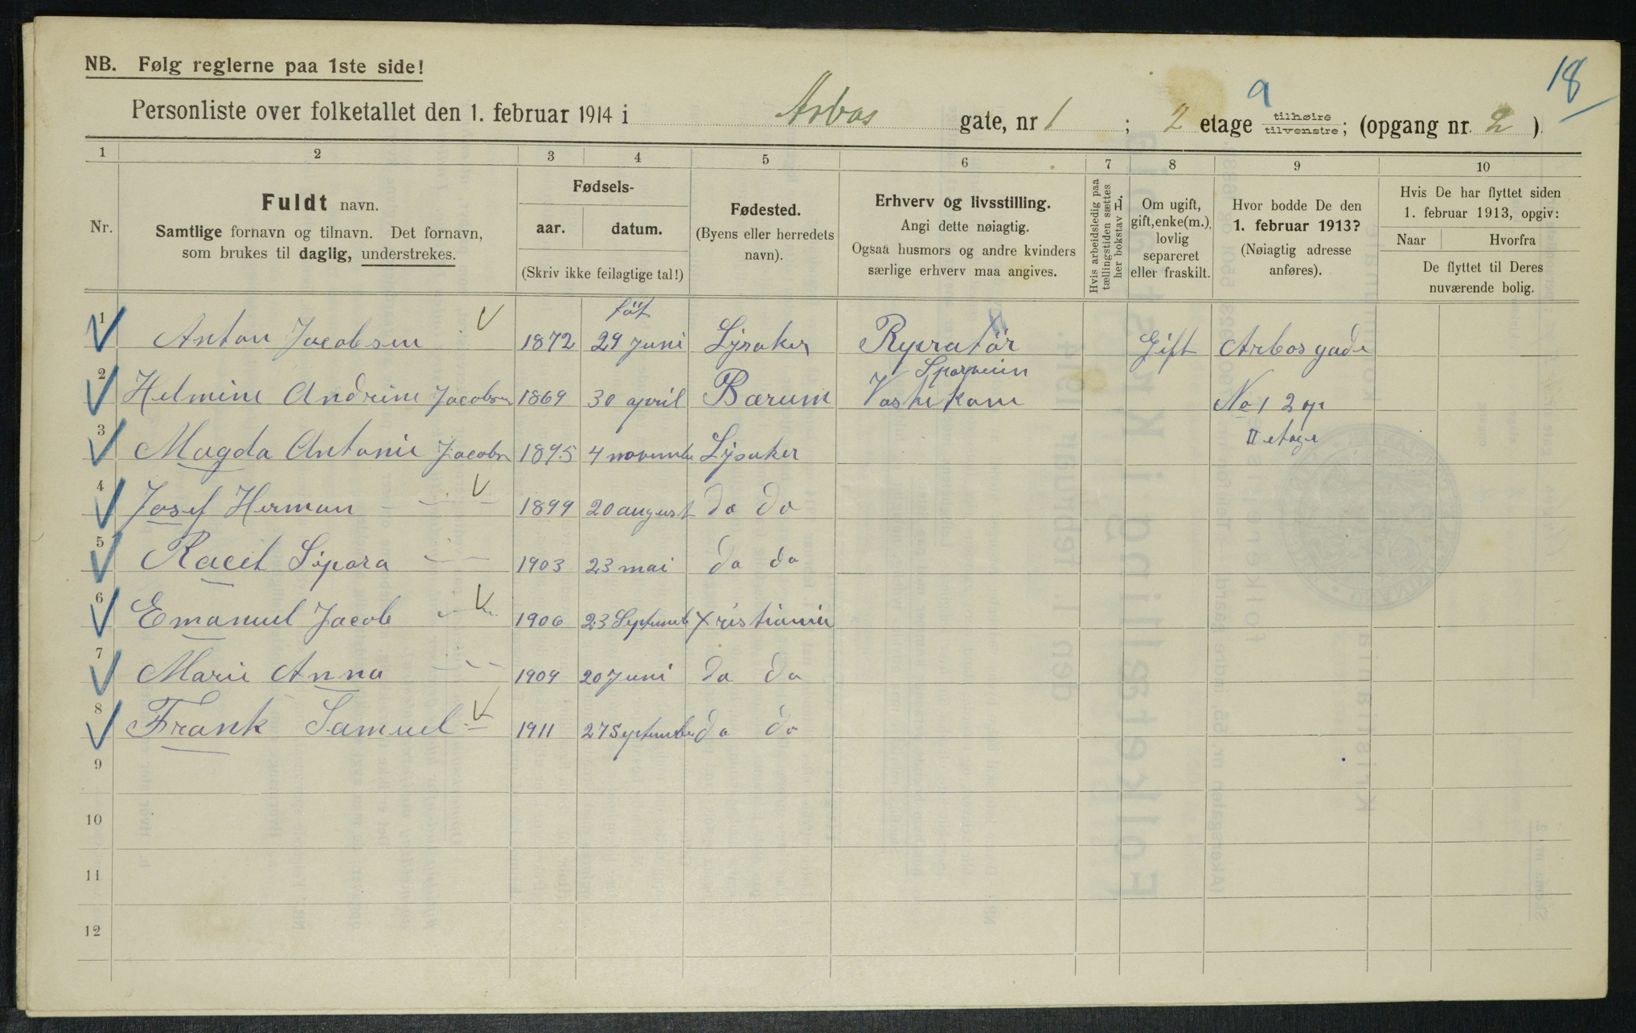 NB. Følg reglerne paa 1ste side!
18
Personliste over folketallet den 1. februar 1914 i Arbos gate, nr 1 ; 2 etage tilhøire tilvenstre; (opgang nr. 2 ).
a
1 2 3 4 5 6 7 8 9 10
Nr.
Fuldt navn.
Samtlige fornavn og tilnavn. Det fornavn,
som brukes til daglig, understrekes.
Fødsels-
aar. datum.
(Skriv ikke feilagtige tal!)
Fødested.
(Byens eller herredets
navn).
Erhverv og livsstilling.
Angi dette nøiagtig.
Ogsaa husmors og andre kvinders
særlige erhverv maa angives.
Hvis arbeidsledig paa
tællingstiden sættes
her bokstav L.
Om ugift,
gift, enke(m.),
lovlig
separeret
eller fraskilt.
Hvor bodde De den
1. februar 1913?
(Nøiagtig adresse
anføres).
Hvis De har flyttet siden
1. februar 1913, opgiv:
Naar Hvorfra
De flyttet til Deres
nuværende bolig.
føt
1 Anton Jacobsen 1872 29 juni Lysaker Repratør Gift Arbosgade
Sporvein
2 Helmine Andrine Jacobsen 1869 30 april Bærum Vaskekone No 1 2 op
II etage
3 Magda Antonie Jacobsn 1895 4 novembe Lysaker
4 Josef Herman -"- 1899 20 august do do
5 Racel Sipora -"- 1903 23 mai do do
6 Emanuel Jacob -"- 1906 23 Septemb Kristiania
7 Marie Anna -"- 1909 20 Juni do do
8 Frank Samuel -"- 1911 27 Septembe do do
9
10
11
12